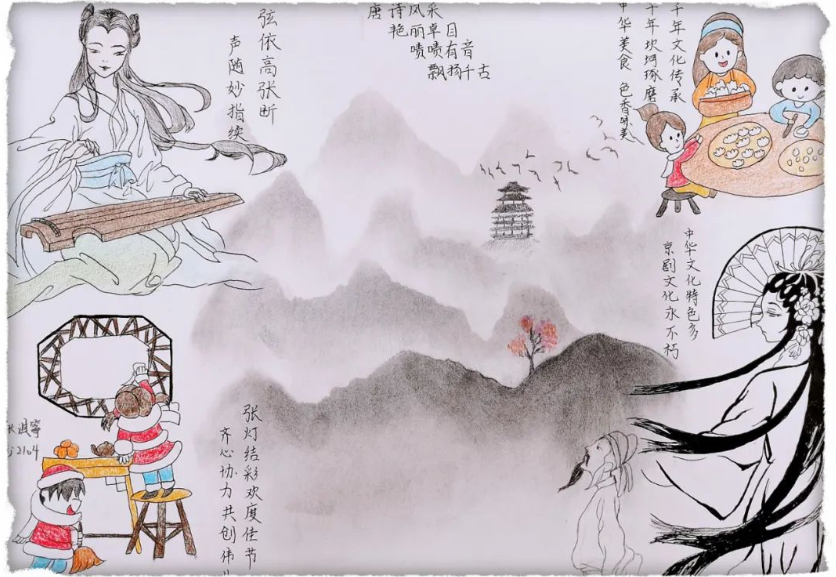 弦依高张断
声随妙指续
唐诗风采
艳丽卓目
啧啧有音
飘扬千古
千年文化传承
千年坎坷琢磨
中华美食 色香味美
中华文化特色多
京剧文化永不朽
张灯结彩欢度佳节
齐心协力共创伟
2104